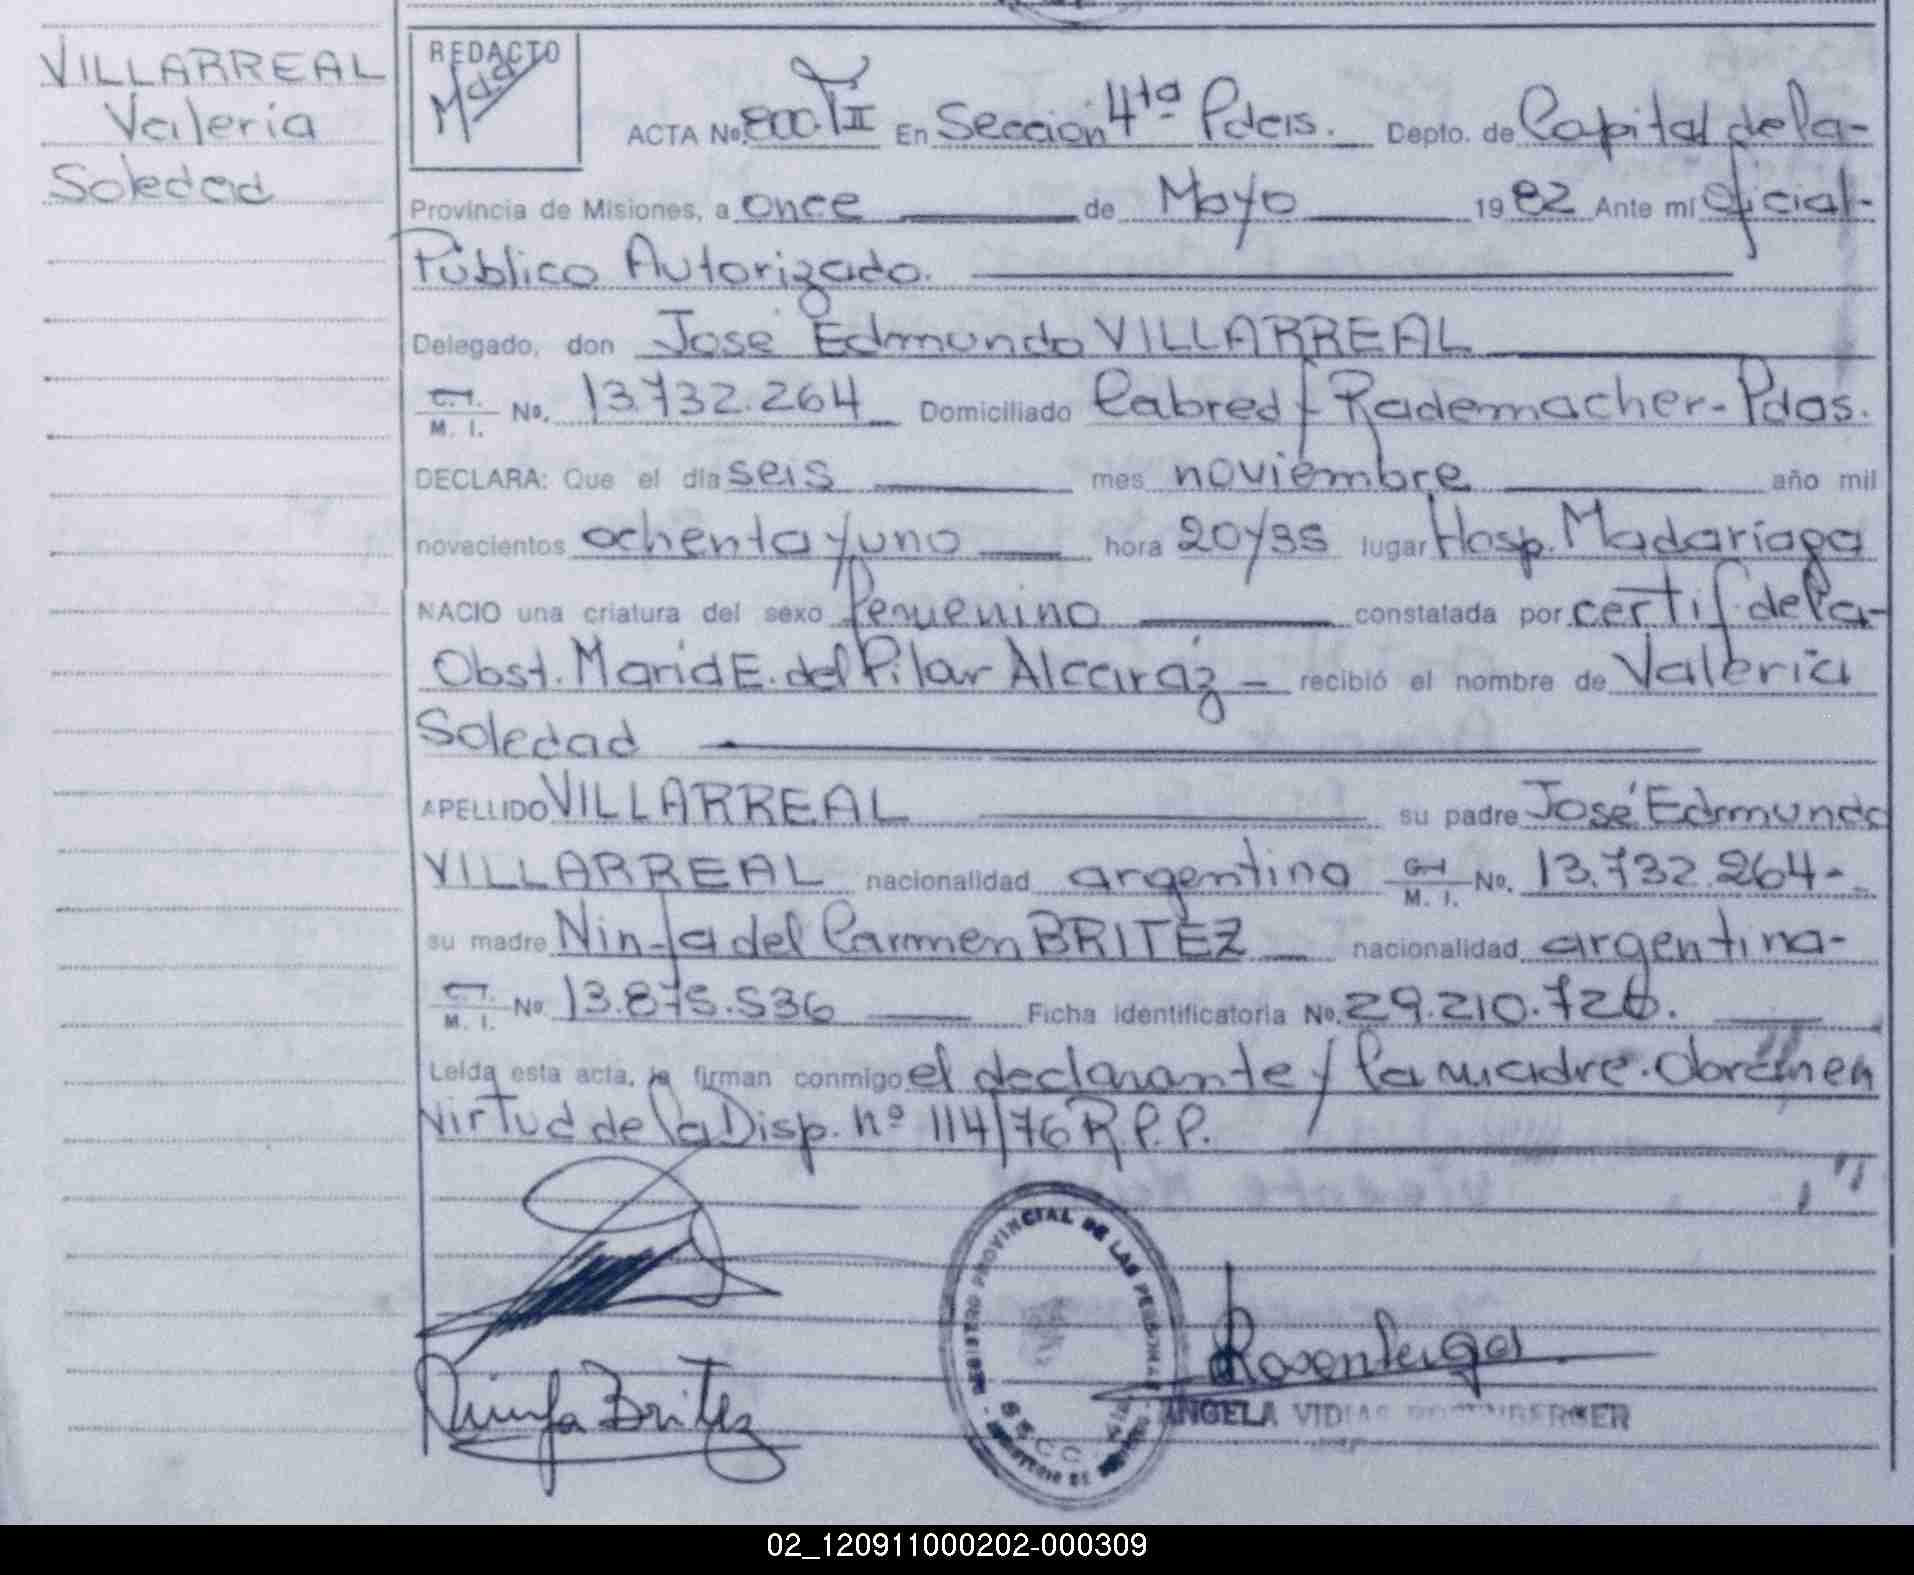 VILLARREAL
Valeria
Soledad
REDACTO
ACTA No. 800. TII En Sección 4ta Pdas. Depto. de Capital de la-
Provincia de Misiones, a once de Mayo 1982 Ante mí Oficial-
Público Autorizado.
Delegado, don José Edmundo VILLARREAL
C.I. M. I. No. 13.732.264 Domiciliado Cabred y Rademacher-Pdas.
DECLARA: Que el día seis mes noviembre año mil
novecientos ochenta y uno hora 20y35 lugar Hosp. Madariaga
NACIO una criatura del sexo femenino constatada por certif. de la-
Obst. María E. del Pilar Alcaráz - recibió el nombre de Valeria
Soledad
APELLIDO VILLARREAL su padre José Edmundo
VILLARREAL nacionalidad argentino C.I. M. I. No. 13.732.264-
su madre Ninfa del Carmen BRITEZ nacionalidad argentina-
C.I. M. I. No. 13.875.536 Ficha identificatoria No. 29.210.726.
Leída esta acta, la firman conmigo el declarante y la madre. Obran en
virtud de la Disp. nº 114/76 R.P.P.
REGISTRO PROVINCIAL DE LAS PERSONAS
SECC. 4ta
Ninfa Britez
Rosenberger
ANGELA VIDIAS ROSENBERGER
02_120911000202-000309